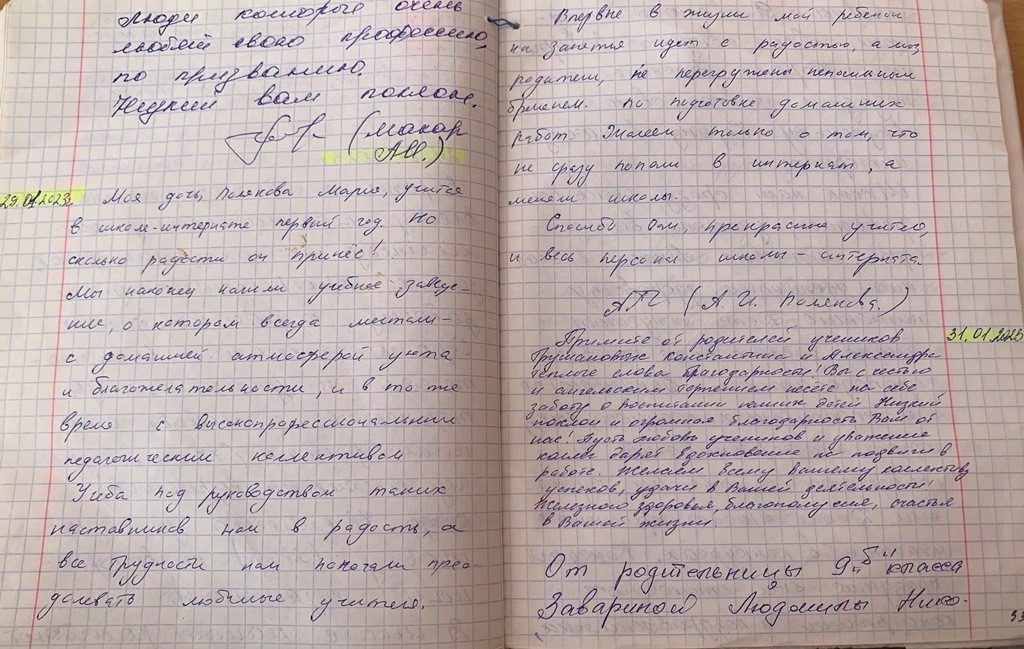 Люди которые очень
любят свою профессию,
по призванию.
Низкий вам поклон.
(Макар
А.И.)
29.01.2023. Моя дочь, Полякова Мария, учится
в школе-интернате первый год. Но
сколько радости он принёс!
Мы наконец нашли учебное заведе-
ние, о котором всегда мечтали -
с домашней атмосферой уюта
и благожелательности, и в то же
время с высокопрофессиональным
педагогическим коллективом
Учёба под руководством таких
наставников нам в радость, а
все трудности нам помогали прео-
долевать любимые учителя.
Впервые в жизни мой ребенок
на занятия идет с радостью, а мы,
родители, не перегружены непосильным
бременем по подготовке домашних
работ. Жалеем только о том, что
не сразу попали в интернат, а
меняли школы.
Спасибо Вам, прекрасные учителя,
и весь персонал школы-интерната.
(А.И. Полякова.)
31.01.2023
Примите от родителей учеников
Константина и Александра
теплые слова благодарности! Вы с честью
и ангельским терпением несёте на себе
заботу о воспитании наших детей. Низкий
поклон и огромная благодарность Вам от
нас! Пусть любовь учеников и уважение
коллег дарят вдохновение на подвиги в
работе. Желаем всему Вашему коллективу
успехов, удачи в Вашей деятельности!
Железного здоровья, благополучия, счастья
в Вашей жизни.
От родительницы 9 "Б" класса
Завариной Людмилы Нико-
33